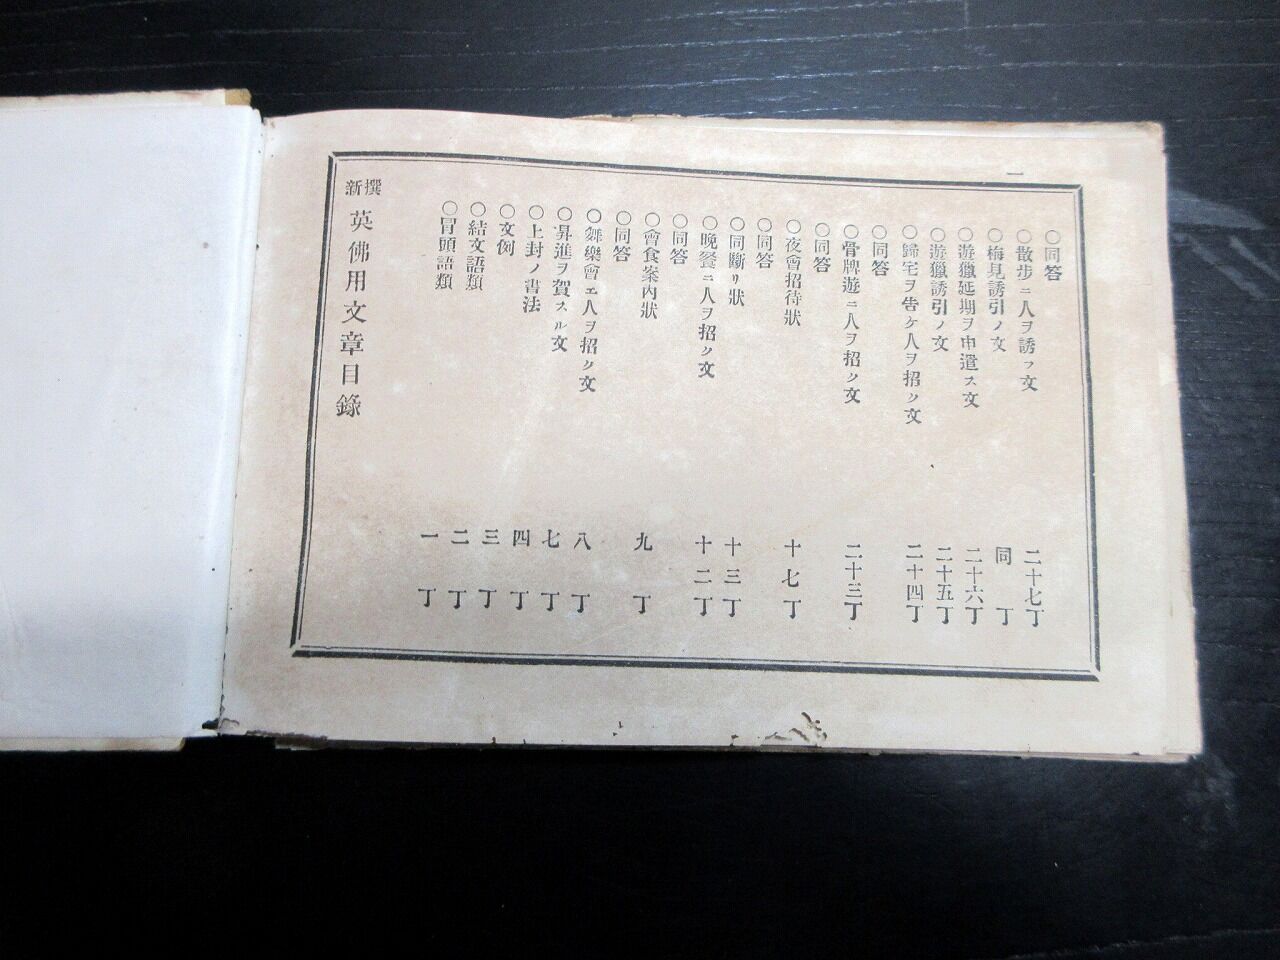 新撰英佛用文章目錄
○冒頭語類 一丁
○結文語類 二丁
○文例 三丁
○上封ノ書法 四丁
○昇進ヲ賀スル文 七丁
○舞樂會エ人ヲ招ク文 八丁
○同答
○會食案内狀 九丁
○同答
○晩餐ニ人ヲ招ク文 十二丁
○同斷リ狀 十三丁
○同答
○夜會招待狀 十七丁
○同答
○骨牌遊ニ人ヲ招ク文 二十三丁
○同答
○歸宅ヲ告ケ人ヲ招ク文 二十四丁
○遊獵誘引ノ文 二十五丁
○遊獵延期ヲ申遣ス文 二十六丁
○梅見誘引ノ文 同丁
○散歩ニ人ヲ誘フ文 二十七丁
○同答
一